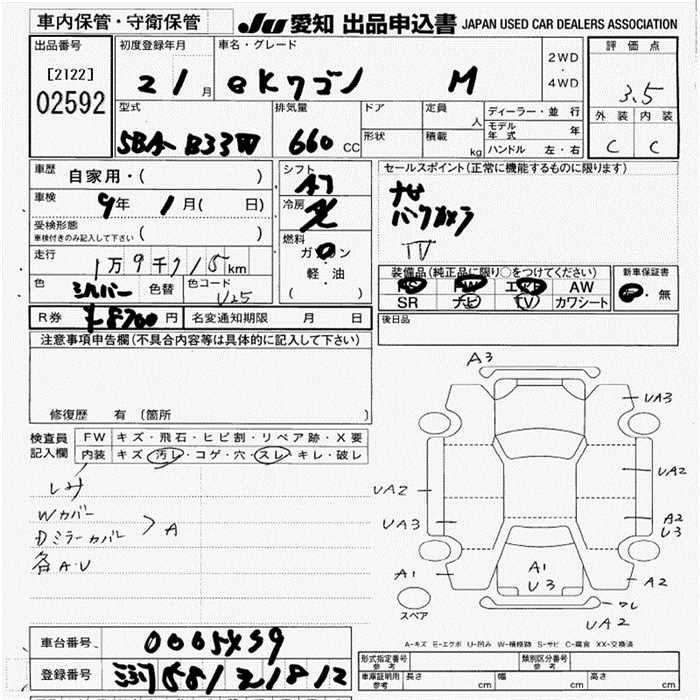 車内保管・守衛保管 JU 愛知 出品申込書 JAPAN USED CAR DEALERS ASSOCIATION
出品番号 初度登録年月 車名・グレード 評価点
[2122] 2 / 月 eKワゴン M 2WD・4WD 3.5
02592
型式 排気量 ドア 定員 人 ディーラー・並行 外装 内装
5BA-B33W 660 CC 形状 積載 kg モデル年式 年 C C
ハンドル 左・右
車歴 自家用・( ) シフト AT セールスポイント(正常に機能するものに限ります)
車検 9年 1月( 日) 冷房 ナビ
受検形態 バックカメラ
車検付きのみ記入して下さい ( ) 燃料 TV
走行 ガソリン
1万9千715km 軽・油
色 シルバー 色替 色コード U25 ( )
装備品(純正品に限り○をつけてください) 新車保証書
AS PW エアB AW 有・無
SR ナビ TV カワシート
R券 ¥8700円 名変通知期限 月 日 後日品
注意事項申告欄(不具合内容等は具体的に記入して下さい)
修復歴 有 (箇所
検査員記入欄 FW キズ・飛石・ヒビ割・リペア跡・X要
内装 キズ・汚レ・コゲ・穴・スレ・キレ・破レ
シミ
Wカバー
Dミラーカバー > A
各A.U
A3
UA3
UA2
UA2
UA3
A2
U3
A1
A1
U3
A2
ワレ
UA2
スペア
A-キズ E-エクボ U-凹み W-補修跡 S-サビ C-腐食 XX-交換済
車台番号
登録番号
形式指定番号 参考 類別区分番号 参考
車庫証明用 参考 長さ cm 幅 cm 高さ cm